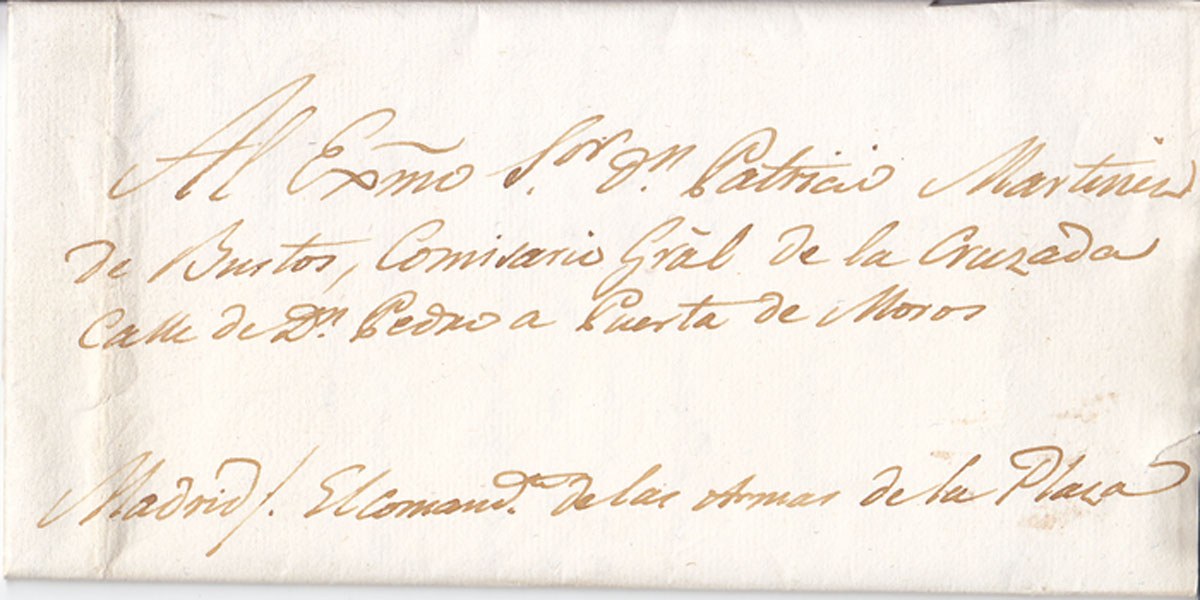 Al Exm̃o S.or D.n Patricio Martinez
de Bustos, Comisario Grãl de la Cruzada
Calle de D.n Pedro a Puerta de Moros
Madrid/. El comand.te de las Armas de la Plaza